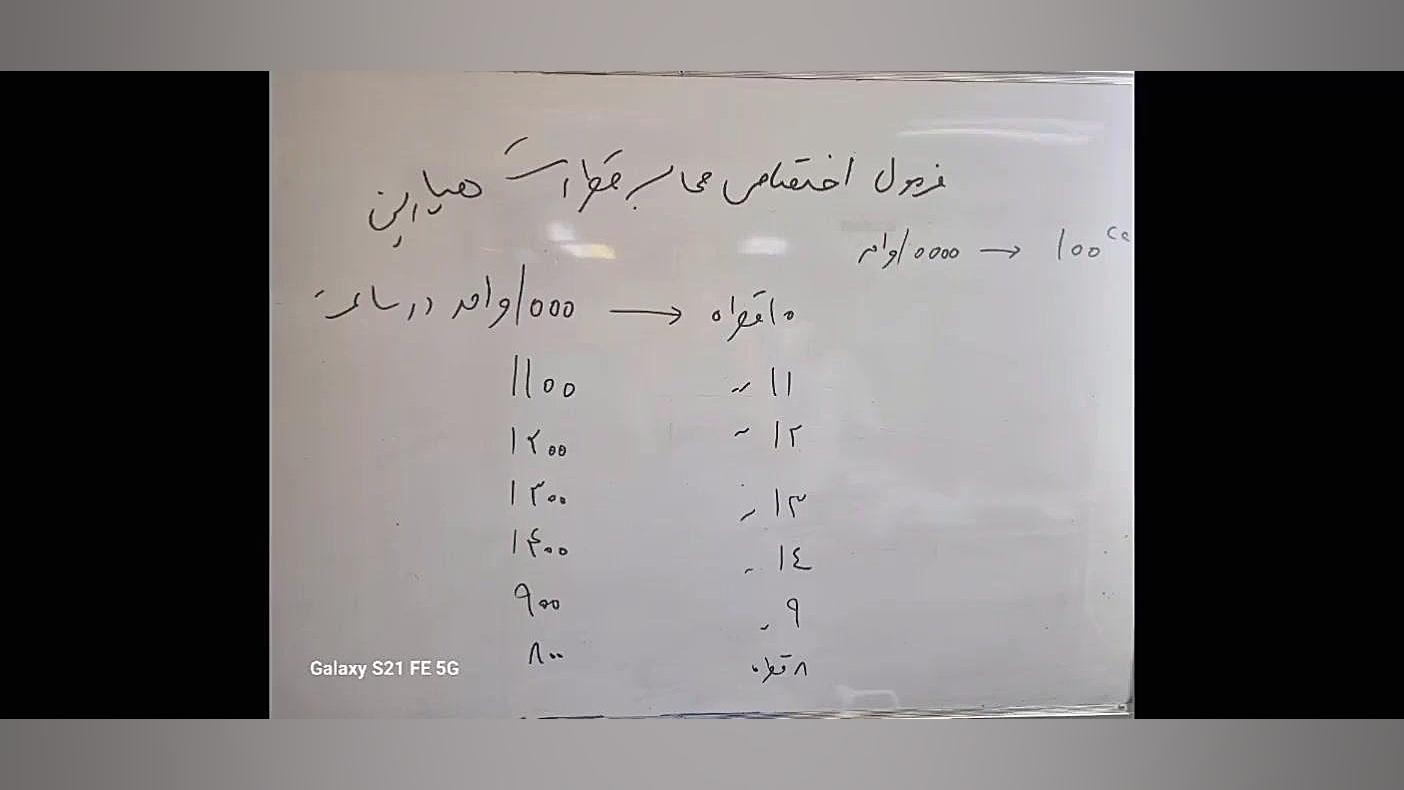 فرمول اختصاصی محاسبه قطرات هپارین
100cc → 10000 واحد
10 قطره → 1000 واحد در ساعت
۱۱ ~ ۱۱۰۰
۱۲ ~ ۱۲۰۰
۱۳ ~ ۱۳۰۰
۱٤ ~ ۱۴۰۰
۹ ~ ۹۰۰
۸ قطره ۸۰۰
Galaxy S21 FE 5G